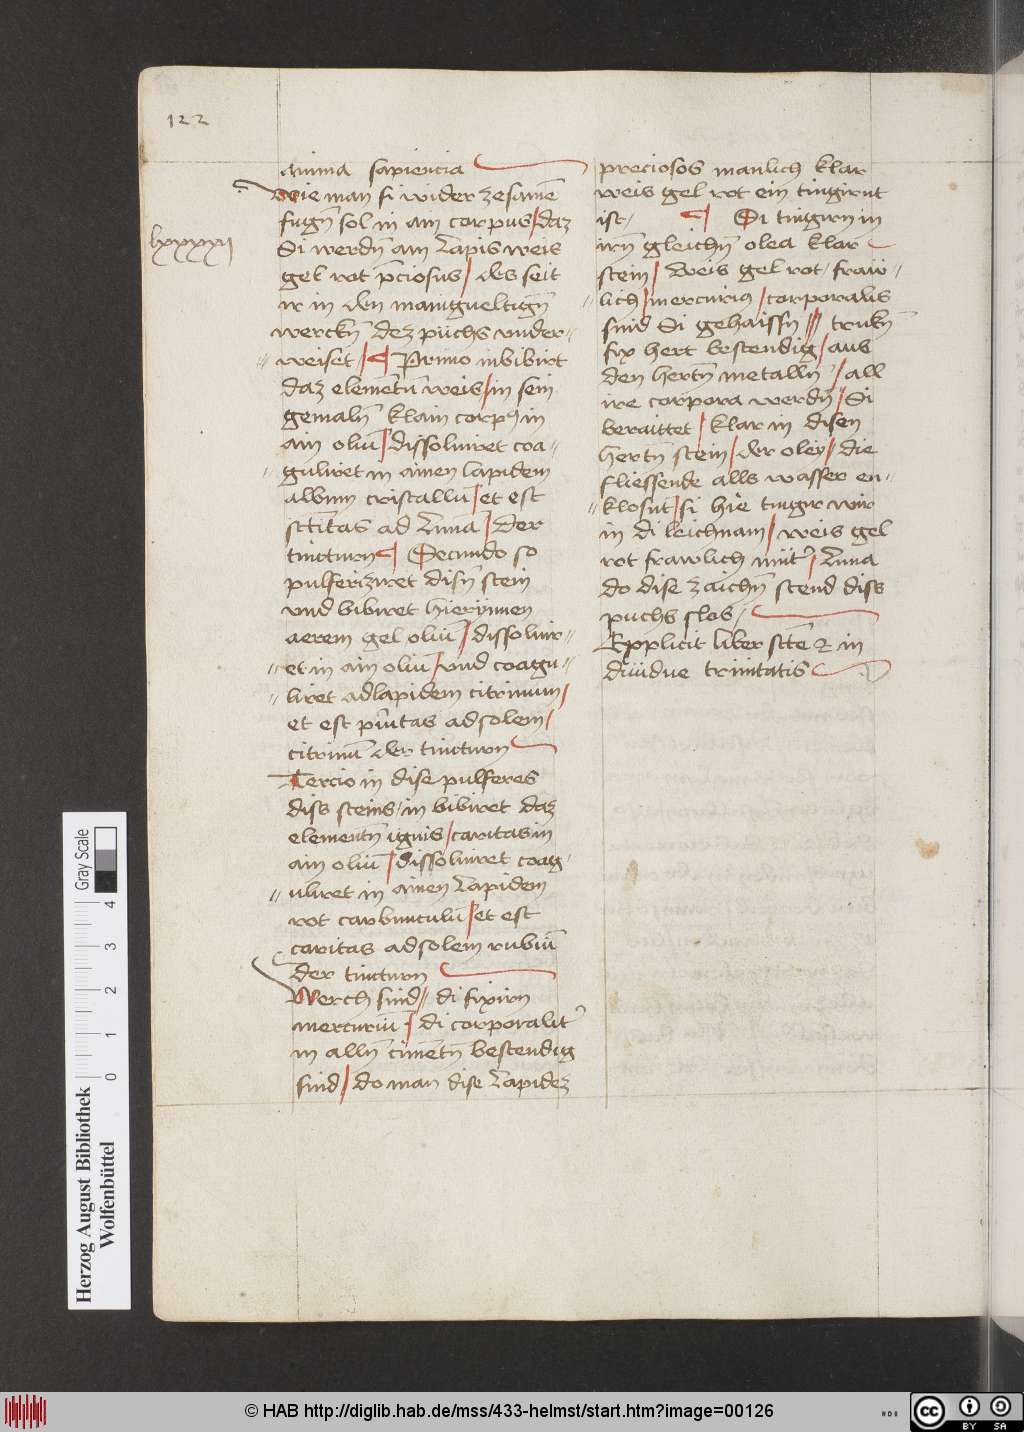 122
anima sapiencia
Wie man si wider zesamē
fugn̄ sol in ain corpus / daz
Si werdn̄ ain Lapis weis
gel rot p̄ciosus / des seit
ir in den manigueltign̄
werckn̄ dez püchs vnder=
=weiset / ¶ Primo inbibirt
daz elemētū weis / in sein
gemaln̄ klain corpꝰ in
ain oliū / dissoluiret coa=
=guliret in ainen lapidem
album cristallū / et est
sctītas ad Luna / der
tincturn ¶ Secundo so
pulferizwret disn̄ stein
vnd bibiret hierjnnen
aerem gel oliū / dissoluir=
=et in ain oliū / vnd coagu=
=liret ad lapidem citrinum /
et est pūitas ad solem /
citrinū der tincturn
Tercio in dise pulferes
diss steins / in bibiret daz
elementn̄ ignis / caritas in
ain oliū / dissoluiret coag=
=uliret in ainen Lapidem
rot carbunculū / et est
caritas ad solem rubiū
der tincturn
Werch sind // di fixirn
mercuriū / di corporalit̾
in alln̄ cimētn̄ bestendig
sind / do man dise Lapidez
lxxxxxij
preciosos manlich klar
weis gel rot ein tingirnt
ist / ¶ Si tingirn in
irn̄ gleichn̄ olea klar
stein / weis gel rot / fraw=
=lich / mercuriꝰ / corporalis
sind Si gehaissn̄ // trukn̄
fix hert bestendig / aus
den hertn̄ metalln̄ / all
ire corpora werdn̄ / Si
beraittet / klar in disen
hertn̄ stein / der oley / die
fliessende alls wasser en=
=klosnt / si hie tingir wir
in di leichnam / weis gel
rot frawlich müt̾ / Luna
do dise zaichn̄ stend diss
puchs slos /
Expplicit liber sctē ⁊ in
diuidue trinitatis
Herzog August Bibliothek
Wolfenbüttel
Gray Scale
0 1 2 3 4
© HAB http://diglib.hab.de/mss/433-helmst/start.htm?image=00126
cc BY SA